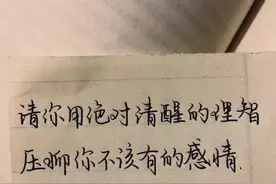 请你用绝对清醒的理智
压抑你不该有的感情.